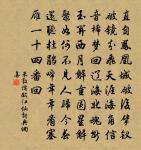 直自鳳凰城破後擘釵
破鏡分飛天涯海角信
音稀夢回遼海北魂斷
玉關西月解重圓星解
聚如何不見人歸今春
還聽杜鵑啼年年看塞
雁一十四番回
朱敦儒